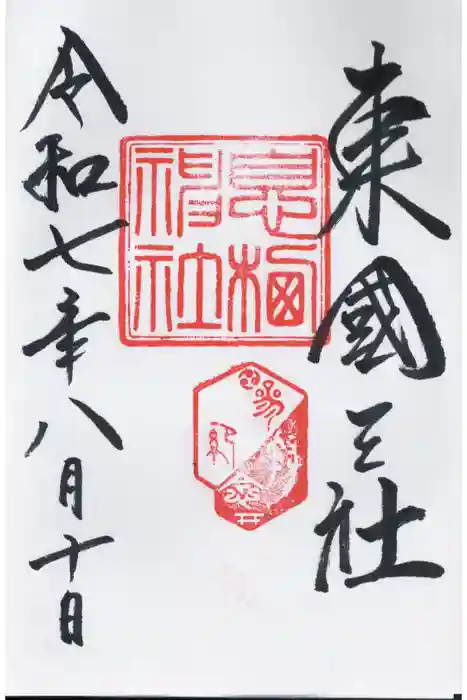 東國三社
息栖神社
令和七年八月十日